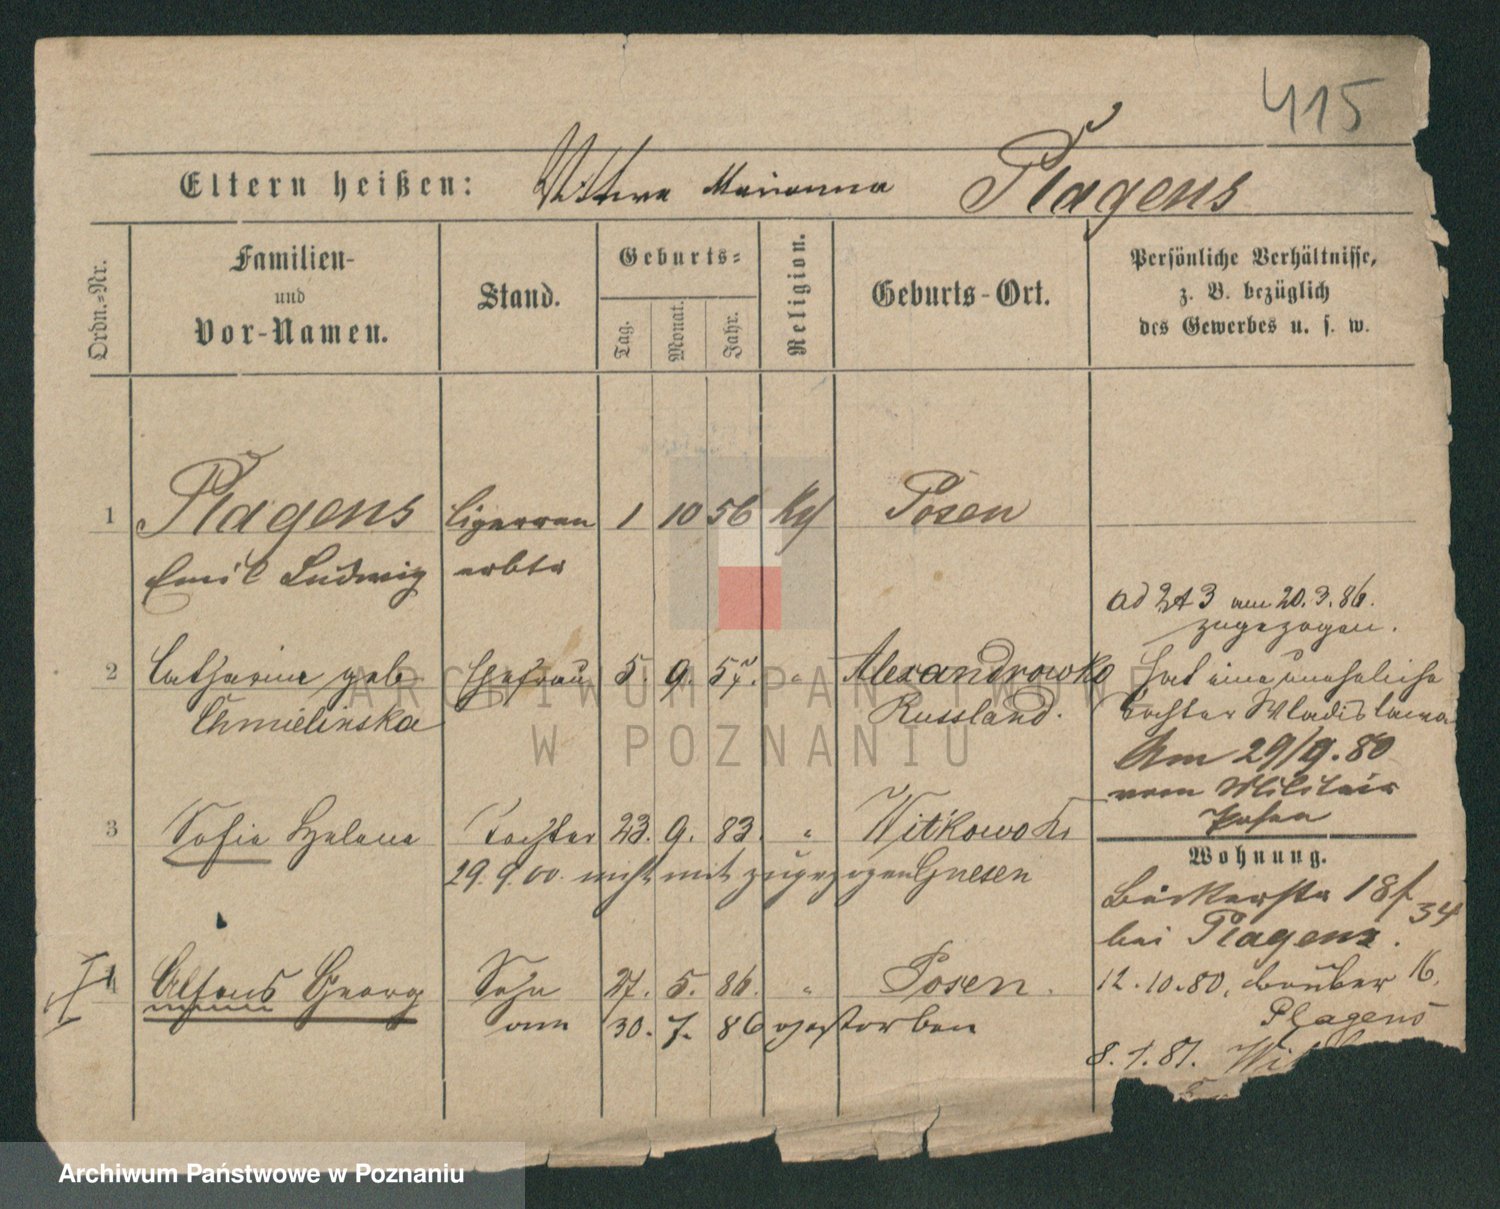 415
Eltern heißen: Wittwe Marianna Plagens
Ordn.=Nr.
Familien-
und
Vor-Namen.
Stand.
Geburts=
Tag.
Monat.
Jahr.
Religion.
Geburts-Ort.
Persönliche Verhältnisse,
z. B. bezüglich
des Gewerbes u. s. w.
1 Plagens Cigarren 1 10 56 Posen
Emil Ludwig arbtr
ad 2 & 3 am 20.3.86.
zugezogen.
2 Catharine geb Ehefrau 5. 9. 57. " Alexandrowko
Chmielinska Russland.
Hat eine uneheliche
Tochter Wladislawa
Am 29/9.80
vom Militair
Posen
3 Sofie Helene Tochter 23. 9. 83. " Witkowo Kr
29.9.00. nicht mit zugezogen Gnesen
Wohnung.
Bäckerstr 18/34
bei Plagens.
4 Alfons Georg Sohn 27. 5. 86. " Posen.
am 30. 7. 86 gestorben
12.10.80. 16.
Plagens
8.1.81.
ARCHIWUM PAŃSTWOWE
W POZNANIU
Archiwum Państwowe w Poznaniu